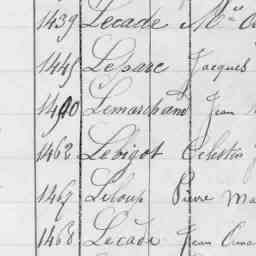 1439 Lecade
1445 Lesaec Jacques
1450 Lemarchand Jean
1462 Lebigot Celestin
1467 Leloup Pierre
1468 Lecade Jean